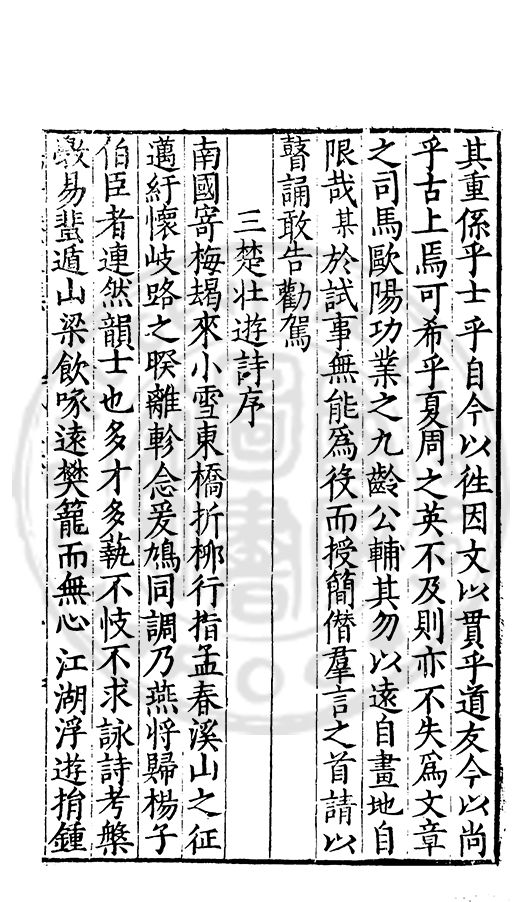 其重係乎士乎自今以徃因文以貫乎道友今以尚
乎古上焉可希乎夏周之英不及則亦不失爲文章
之司馬歐陽功業之九齡公輔其勿以遠自畫地自
限哉某於試事無能爲役而授簡僭羣言之首請以
瞽誦敢告勸駕
三楚壯遊詩序
南國寄梅朅來小雪東橋折桺行指孟春溪山之征
邁紆懷岐路之暌離軫念爰鳩同調乃燕將歸楊子
伯臣者連然韻士也多才多埶不忮不求詠詩考槃
斆易蜚遁山梁飲啄遠樊籠而無心江湖浮遊捐鍾